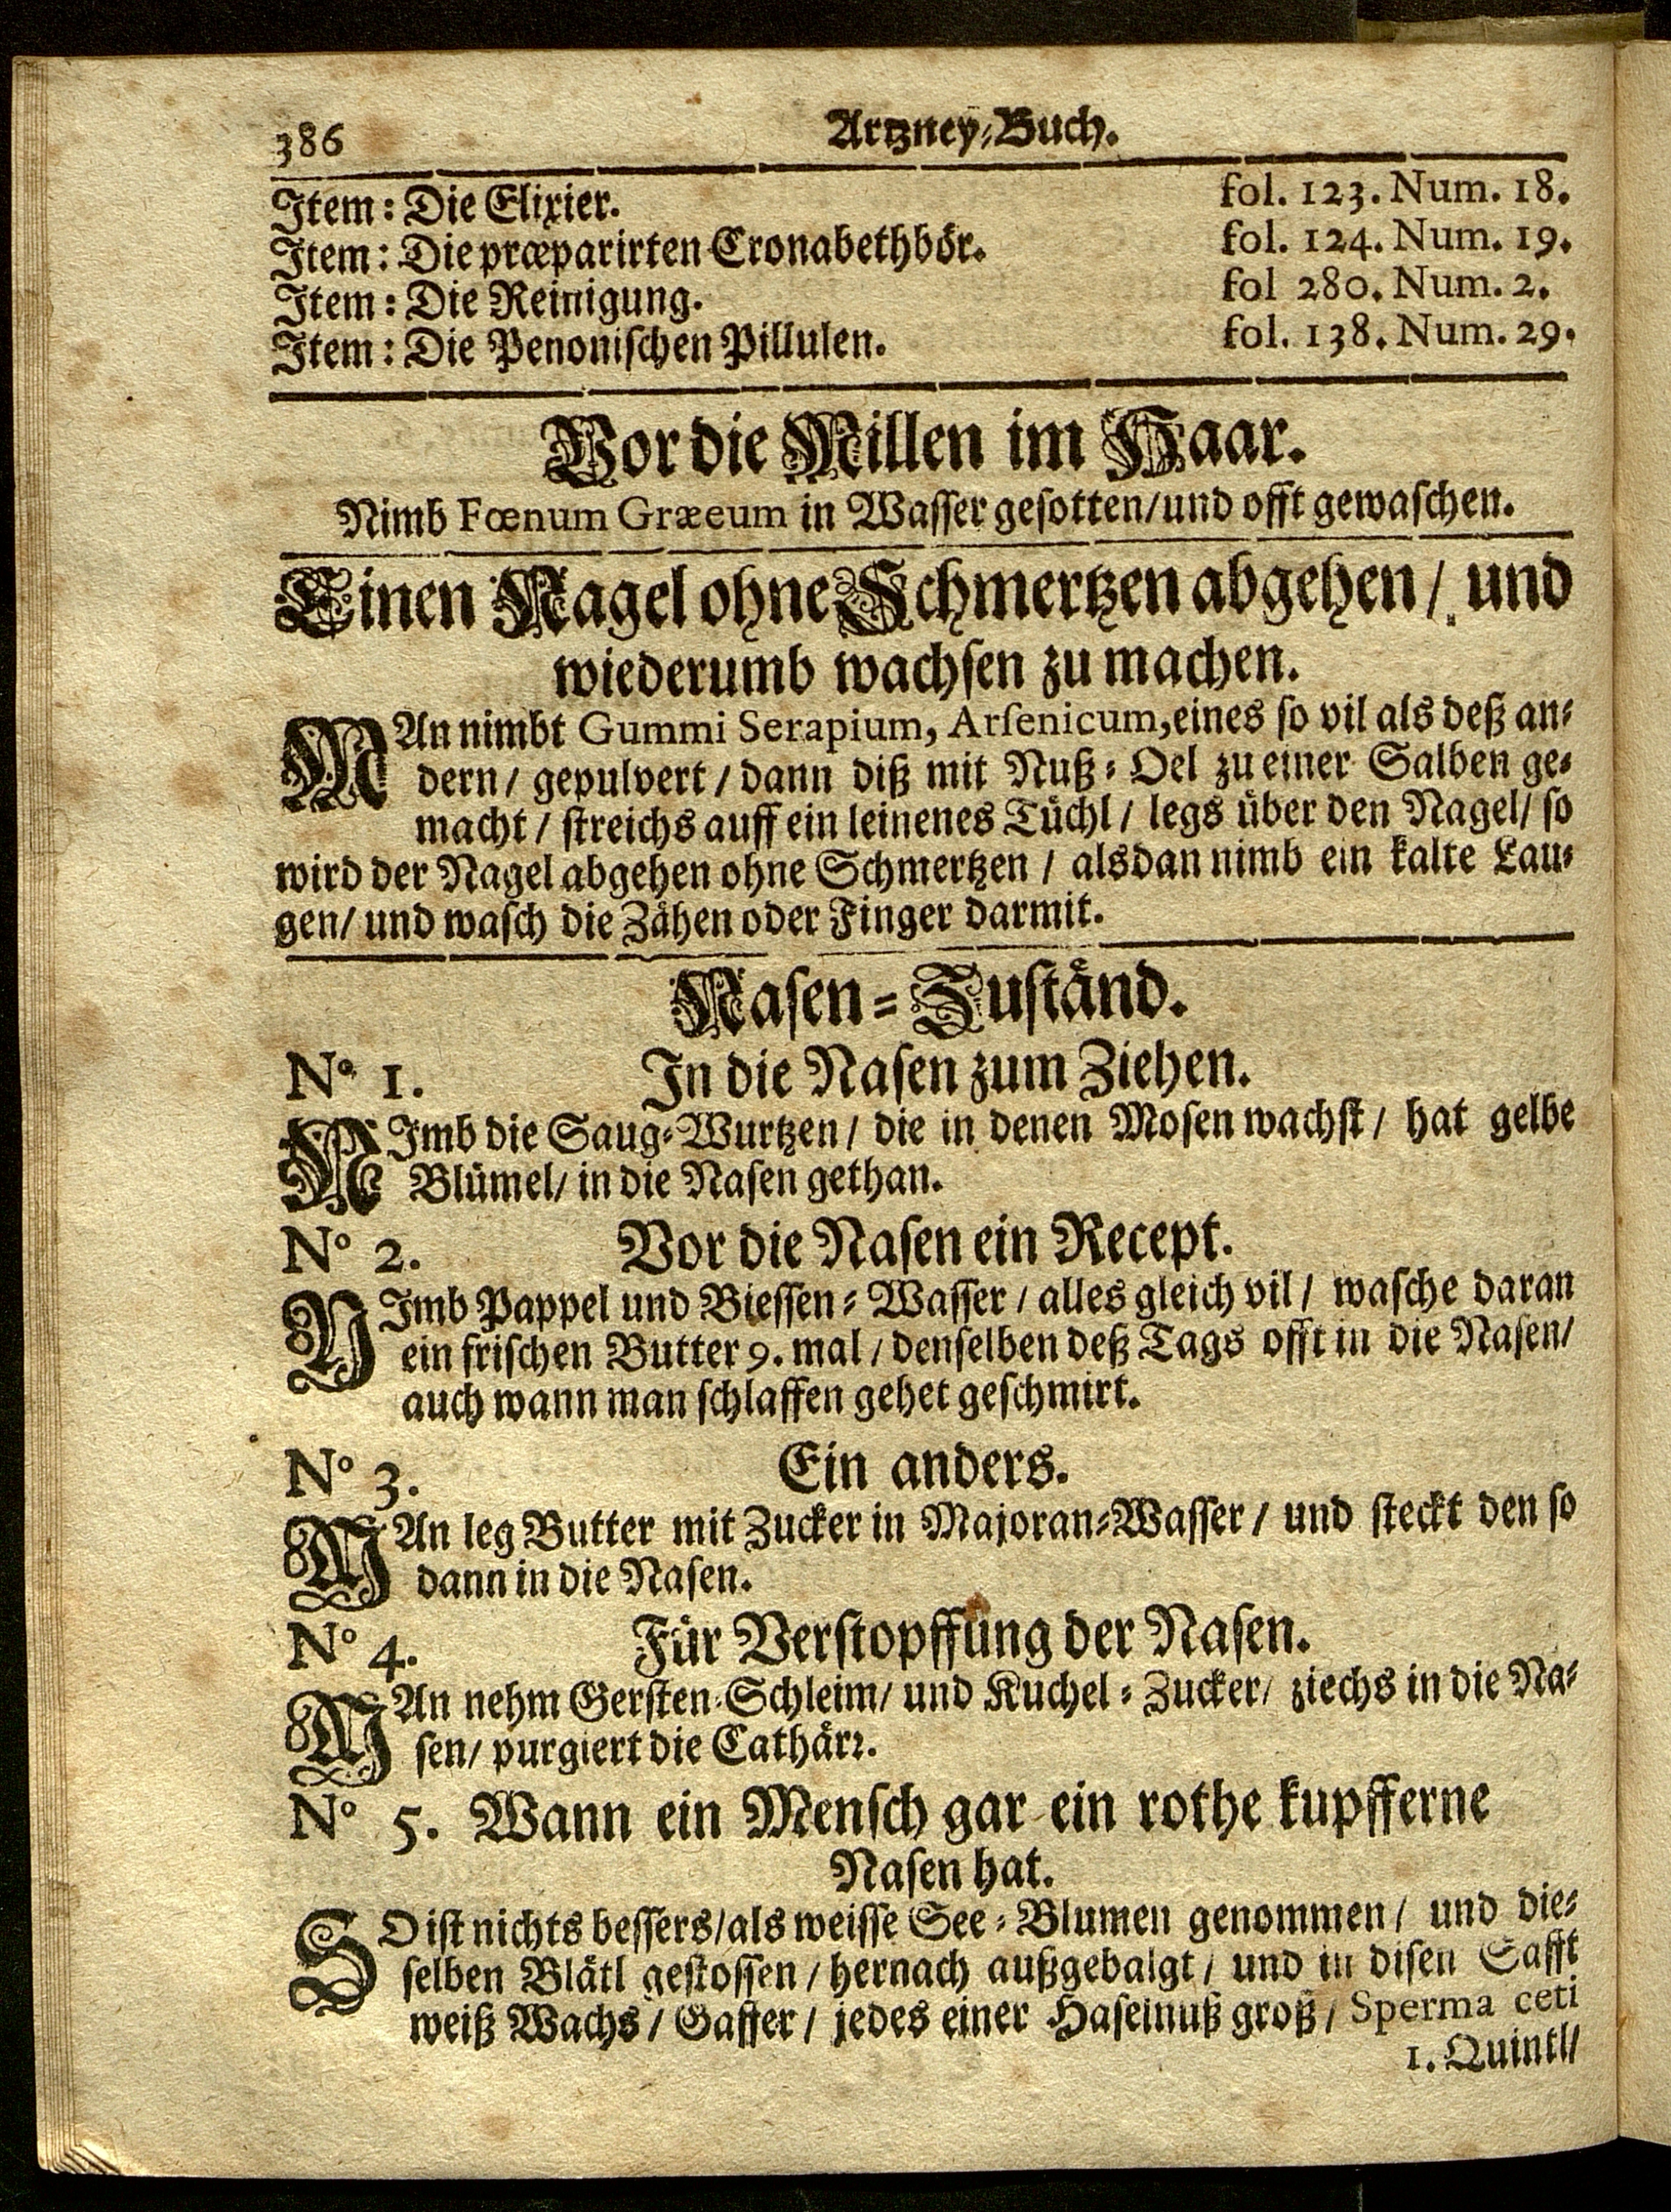 386 Artzney-Buch.
Item: Die Elixier. fol. 123. Num. 18.
Item: Die præparirten Cronabethbör. fol. 124. Num. 19.
Item: Die Reinigung. fol 280. Num. 2.
Item: Die Penonischen Pillulen. fol. 138. Num. 29.
Vor die Millen im Haar.
Nimb Fœnum Græeum in Wasser gesotten/und offt gewaschen.
Einen Nagel ohne Schmertzen abgehen/ und
wiederumb wachsen zu machen.
MAn nimbt Gummi Serapium, Arsenicum, eines so vil als deß an-
dern/ gepulvert/ dann diß mit Nuß-Oel zu einer Salben ge-
macht/ streichs auff ein leinenes Tüchl/ legs über den Nagel/ so
wird der Nagel abgehen ohne Schmertzen/ alsdan nimb ein kalte Lau-
gen/ und wasch die Zähen oder Finger darmit.
Nasen-Zuständ.
N° 1. In die Nasen zum Ziehen.
NImb die Saug-Wurtzen/ die in denen Mosen wachst/ hat gelbe
Blümel/ in die Nasen gethan.
N° 2. Vor die Nasen ein Recept.
NImb Pappel und Biessen-Wasser/ alles gleich vil/ wasche daran
ein frischen Butter 9. mal/ denselben deß Tags offt in die Nasen/
auch wann man schlaffen gehet geschmirt.
N° 3. Ein anders.
MAn leg Butter mit Zucker in Majoran-Wasser/ und steckt den so
dann in die Nasen.
N° 4. Für Verstopffung der Nasen.
MAn nehm Gersten-Schleim/ und Kuchel-Zucker/ ziechs in die Na-
sen/ purgiert die Cathärr.
N° 5. Wann ein Mensch gar ein rothe kupfferne
Nasen hat.
SO ist nichts bessers/als weisse See-Blumen genommen/ und die-
selben Blätl gestossen/ hernach außgebalgt/ und in disen Safft
weiß Wachs/ Gaffer/ jedes einer Haselnuß groß/ Sperma ceti
1. Quintl/